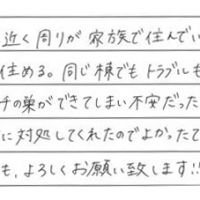 近く周りが家族で住んでい
住める。同じ棟でもトラブルも
チの巣ができてしまい不安だった
に対処してくれたのでよかったで
も、よろしくお願い致します!!